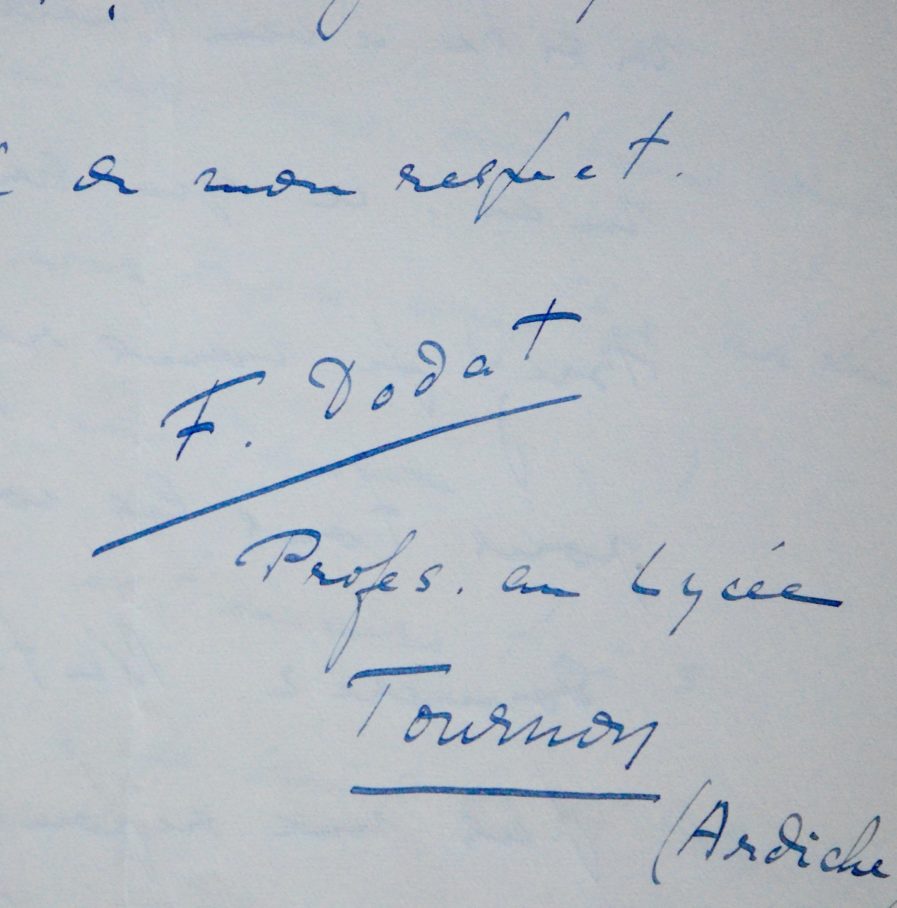 de mon respect.
F. Dodat
Profes. au Lycée
Tournon
(Ardèche